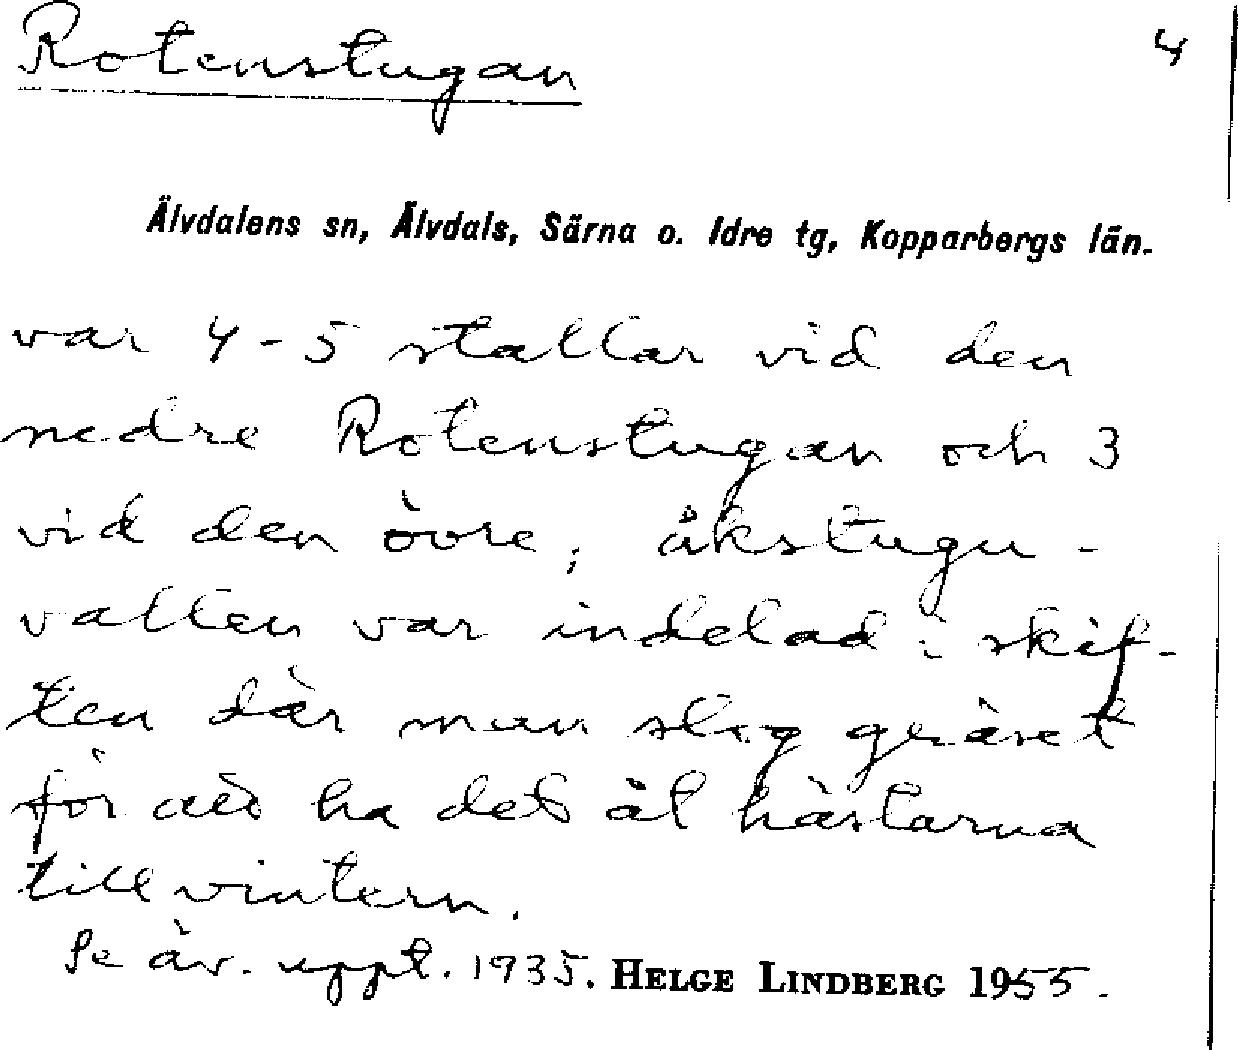 Rotenstugan 4
Älvdalens sn, Älvdals, Särna o. Idre tg, Kopparbergs län.
var 4-5 stallar vid den
nedre Rotenstugan och 3
vid den övre; åkstugu-
vallen var indelad i skif-
ten där man slog gräset
för att ha det åt hästarna
till vintern.
Se äv. uppt. 1935. HELGE LINDBERG 1955.